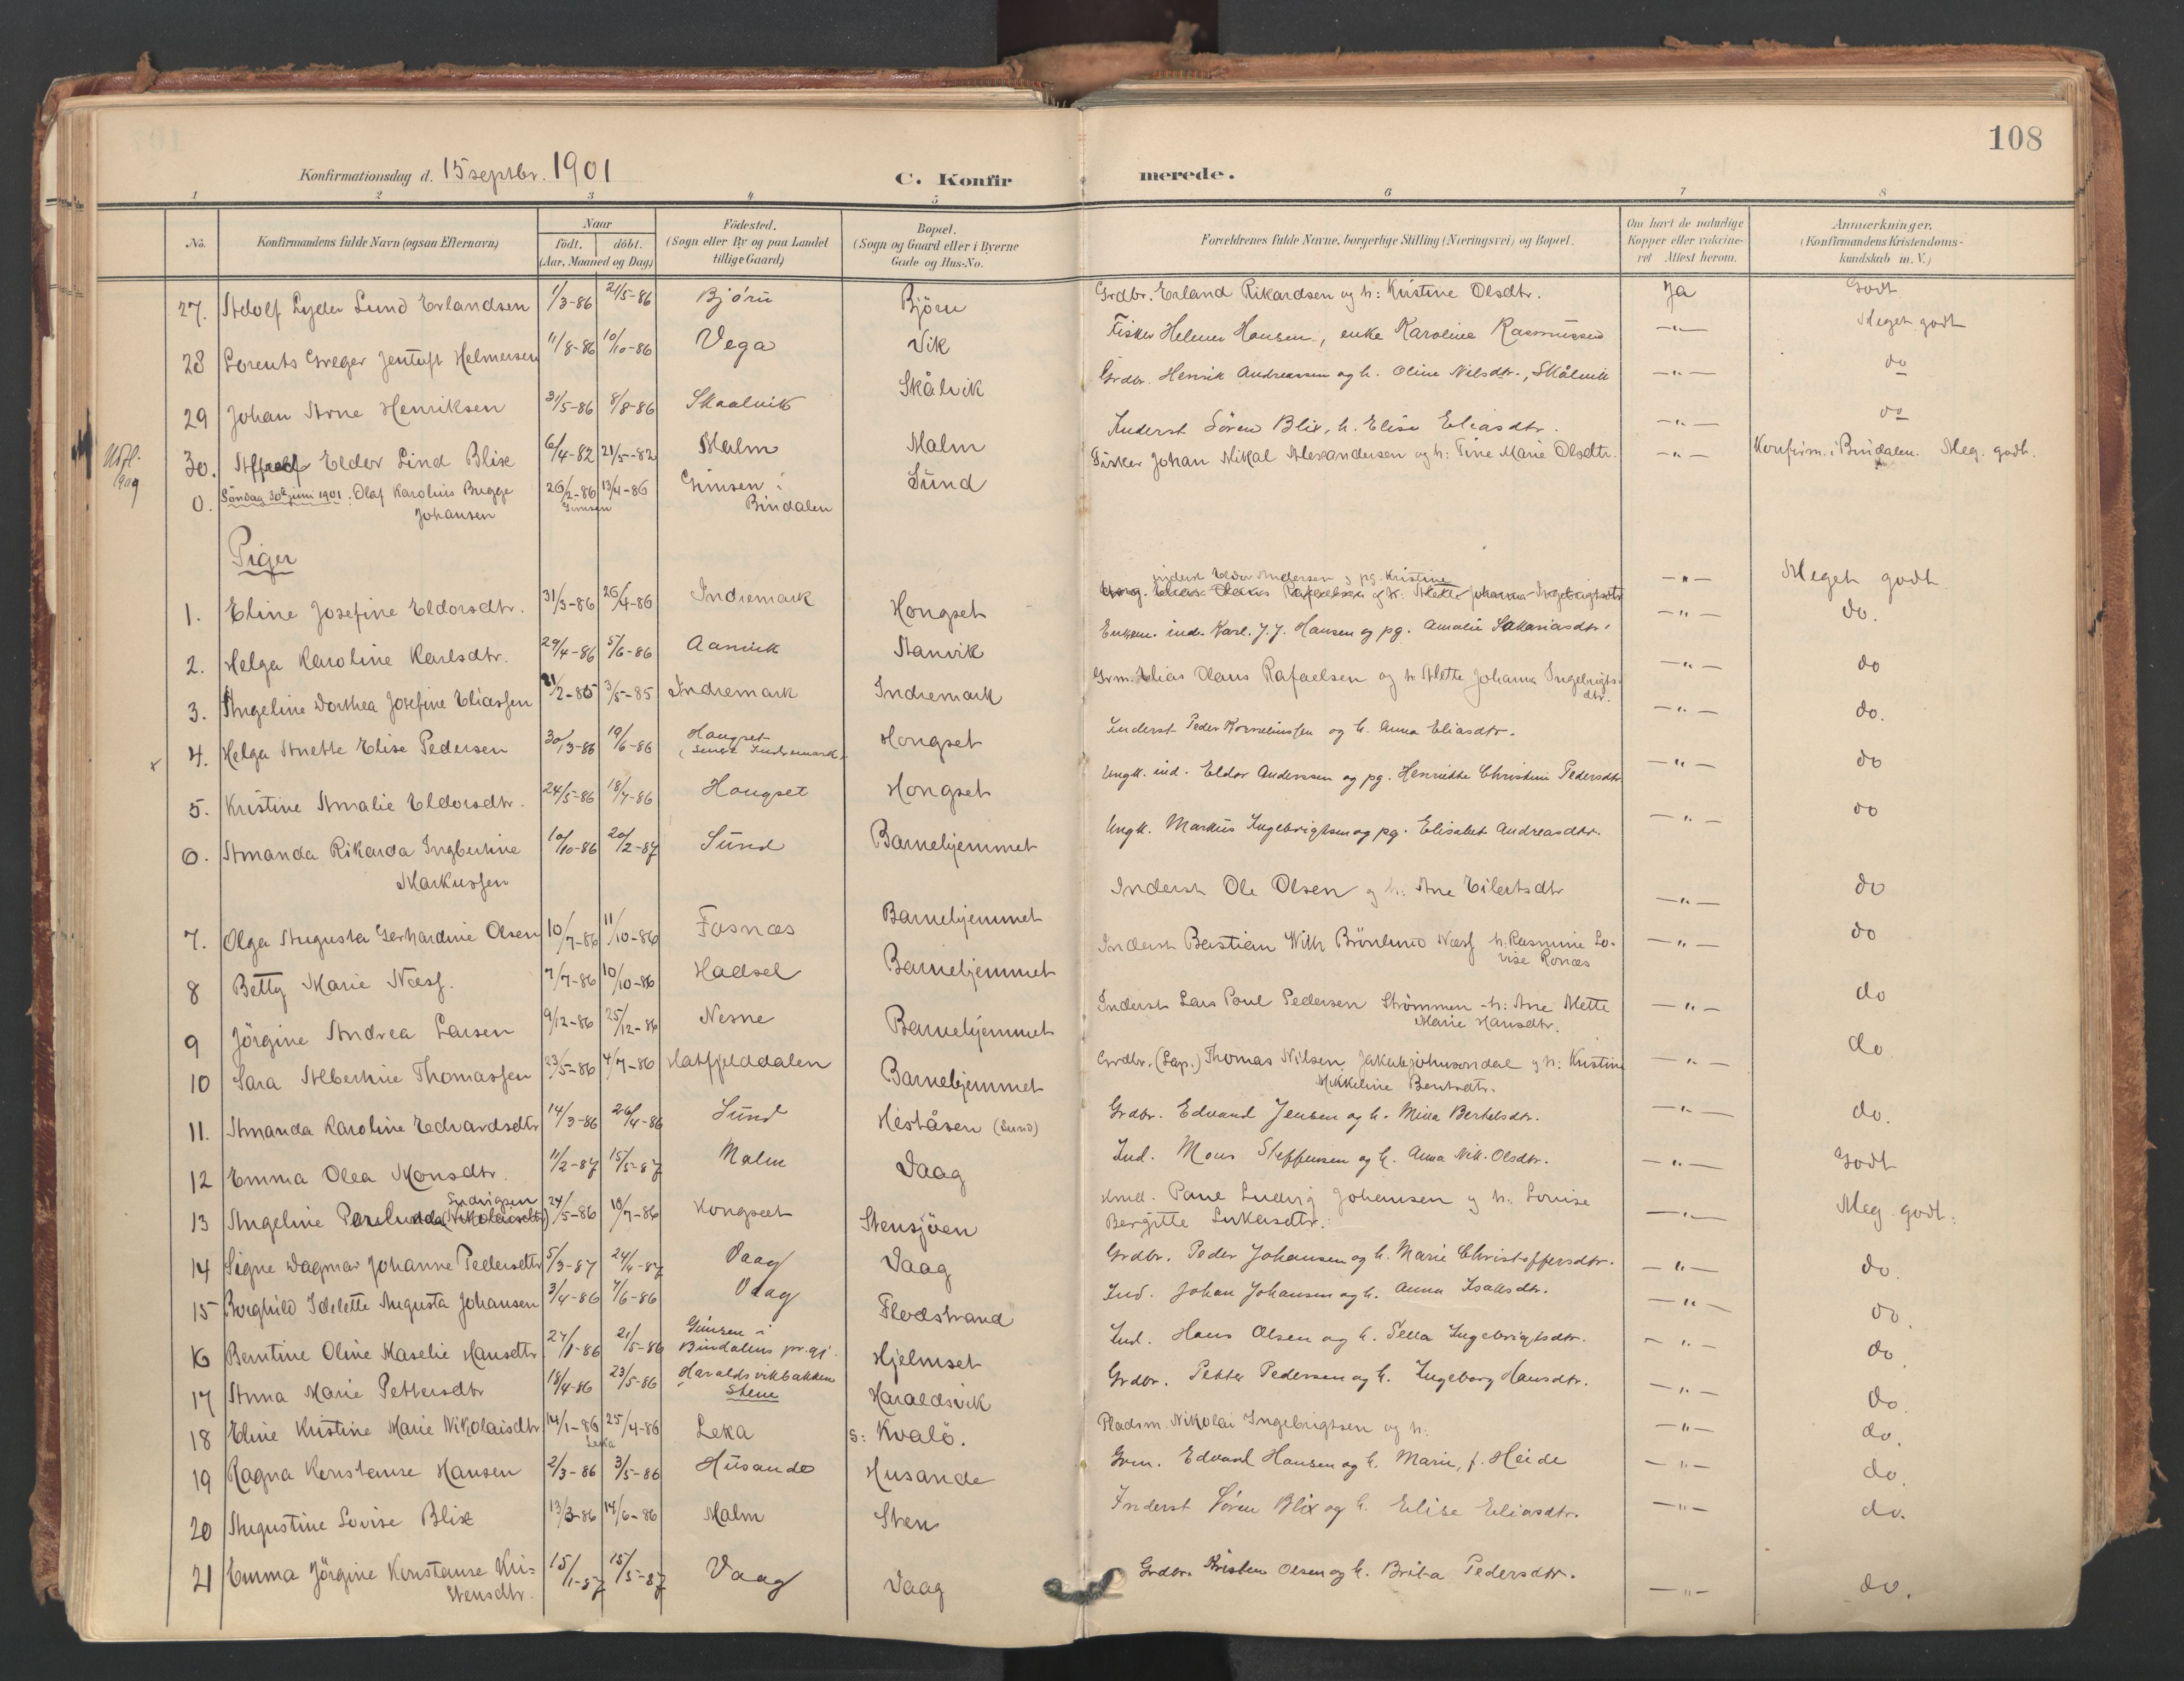 108
Konfirmationsdag d. 15 septbr. 1901
C. Konfirmerede.
1 2 3 4 5 6 7 8
No. Konfirmandens fulde Navn (ogsaa Efternavn) Naar födt. döbt. (Aar, Maaned og Dag) Födested. (Sogn eller By og paa Landet tillige Gaard) Bopæl. (Sogn og Gaard eller i Byerne Gade og Hus-No. Forældrenes fulde Navne, borgerlige Stilling (Næringsvei) og Bopæl. Om havt de naturlige Kopper eller vaccineret Attest herom. Anmærkninger. (Konfirmandens Kristendomskundskab m. V.)
27. Adolf Lyder Lund Erlandsen 1/3-86 21/5-86 Bjørn Björn Grdbr. Erland Rikardsen og h: Kristine Olsdtr. Ja Godt
28 Lorents Greger Jentoft Helmersen 11/8-86 10/10-86 Vega Vik Fisker Helmer Hansen, enke Karoline Rasmussen -"- Meget godt
29 Johan Arne Henriksen 31/5-86 8/8-86 Skaalvik Skålvik Grdbr. Henrik Andreassen og h. Oline Nilsdtr., Skålvik -"- do
30. Eldor Lind Blix 6/4-82 21/5-82 Malm Malm Inderst Sören Blix, h. Elise Eliasdtr. -"- do
Utfl. 1909
0. Söndag 30te juni 1901. Olaf Karolius Bugge Johansen 26/2-86 13/4-86 Gimsen Gimsen i Bindalen Sund Fisker Johan Mikal Alexandersen og h: Tine Marie Olsdtr. -"- Konfirm. i Bindalen. Meg. godt.
Piger
1. Eline Josefine Eldorsdtr. 31/3-86 26/4-86 Indremark Hongset inderst Eldor Andersen og pg. Kristine -"- Meget godt
2. Helga Karoline Karlsdtr. 29/4-86 5/6-86 Aanvik Aanvik Enkem. ind. Karl. J. J. Hansen og pg. Amalie Sakariasdtr. -"- do.
3. Angeline Dorthea Josefine Eliassen 21/2-85 3/5-85 Indremark Indremark Grm. Elias Olaus Rafaelsen og h. Alette Johanna Ingebrigtsdtr. -"- do
4. Helga Anette Elise Pedersen 30/3-86 19/6-86 Hongset Hongset Inderst Peder Kornelinssen og h. Anna Eliasdtr. -"- do.
5. Kristine Amalie Eldorsdtr. 24/5-86 18/7-86 Hongset Hongset Ungk. ind. Eldor Anderssen og pg. Henriette Christine Pedersdtr -"- do
6. Amanda Rikarda Ingbertine Markussen 10/10-86 20/2-87 Sund Barnehjemmet Ungk. Markus Ingebrigtsen og pg. Elisabet Andreasdtr. -"- do
7. Olga Augusta Gerhardine Olsen 10/7-86 11/10-86 Fosnæs Barnehjemmet Inderst Ole Olsen og h: Ane Eilertsdtr -"- do
8 Betty Marie Næss. 7/7-86 10/10-86 Hadsel Barnehjemmet Inderst Bastian Wilh Brönlund Næss h: Rasmine Lovise Ronæs -"- do
9 Jörgine Andrea Larsen 9/12-86 25/12-86 Nesne Barnehjemmet Inderst Lars Poul Pedersen Strömmen - h: Ane Mette Marie Hansdtr. -"- do
10 Sara Albertine Thomassen 23/5-86 4/7-86 Hatfjelddalen Barnehjemmet Grdbr. (Lap.) Thomas Nilsen, Jakobjohnsondal og h: Kristine Mikkeline Bentsdtr. -"- do
11. Amanda Karoline Edvardsdtr 14/3-86 26/4-86 Sund Heståsen (Sund) Grdbr. Edvard Jensen og h. Mina Bertelsdtr. -"- do.
12 Emma Olea Monsdtr. 11/2-87 15/5-87 Malm Vaag Ind. Mons Steffensen og h. Anna Nik. Olsdtr. -"- Godt
13 Angeline Ludvigsen 24/5-86 18/7-86 Hongseet Stensjöen Paul Ludvig Johansen og h. Lovise Bergitte Lukasdtr. -"- Meg. godt.
14 Signe Dagmar Johanne Pedersdtr 5/3-87 24/4-87 Vaag Vaag Grdbr. Peder Johansen og h. Marie Christoffersdtr. -"- do.
15 Borghild Idelette Augusta Johansen 3/4-86 7/6-86 Vaag Flodstrand Ind. Johan Johansen og h. Anna Isaksdtr. -"- do.
16 Berntine Oline Maselie Hansdtr 27/1-86 21/5-86 Gimsen i Bindalens pr.gj. Hjelmset Ind. Hans Olsen og h. Pella Ingebrigtsdtr. -"- do.
17 Anna Marie Pettersdtr 18/4-86 23/5-86 Haraldsvikbakken Stene Haraldsvik Grdbr. Petter Pedersen og h. Ingeborg Hansdtr. -"- do.
18 Eline Kristine Marie Nikolaisdtr 14/1-86 25/4-86 Leka Leka s: Kvalö. Pladsm. Nikolai Ingebrigtsen og h: -"- do.
19 Ragna Konstanse Hansen 2/3-86 3/5-86 Husande Husande Grm. Edvard Hansen og h. Marie, f. Heide -"- do.
20 Augustine Lovise Blix 13/3-86 14/6-86 Malm Sten Inderst Sören Blix og h. Elise Eliasdtr. -"- do.
21 Emma Jörgine Konstanse Kristensdtr. 15/1-87 15/5-87 Vaag Vaag Grdbr. Kristen Olsen og h. Brita Pedersdtr. -"- do.